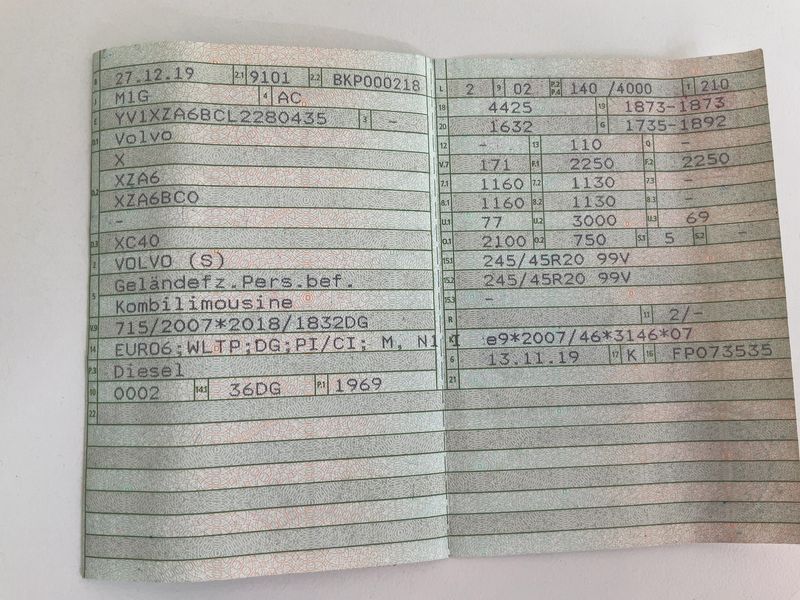 B 27.12.19 2.1 9101 2.2 BKP000218
J M1G 4 AC
E YV1XZA6BCL2280435 3 -
D.1 Volvo
X
D.2 XZA6
XZA6BC0
-
D.3 XC40
2 VOLVO (S)
5 Geländefz.Pers.bef.
Kombilimousine
V.9 715/2007*2018/1832DG
14 EURO6;WLTP;DG;PI/CI; M, N1 I
P.3 Diesel
10 0002 14.1 36DG P.1 1969
22
L 2 9 02 P.2 P.4 140 /4000 T 210
18 4425 19 1873-1873
20 1632 G 1735-1892
12 - 13 110 Q -
V.7 171 F.1 2250 F.2 2250
7.1 1160 7.2 1130 7.3 -
8.1 1160 8.2 1130 8.3 -
U.1 77 U.2 3000 U.3 69
O.1 2100 O.2 750 S.1 5 S.2 -
15.1 245/45R20 99V
15.2 245/45R20 99V
15.3 -
R 11 2/-
K e9*2007/46*3146*07
6 13.11.19 17 K 16 FP073535
21